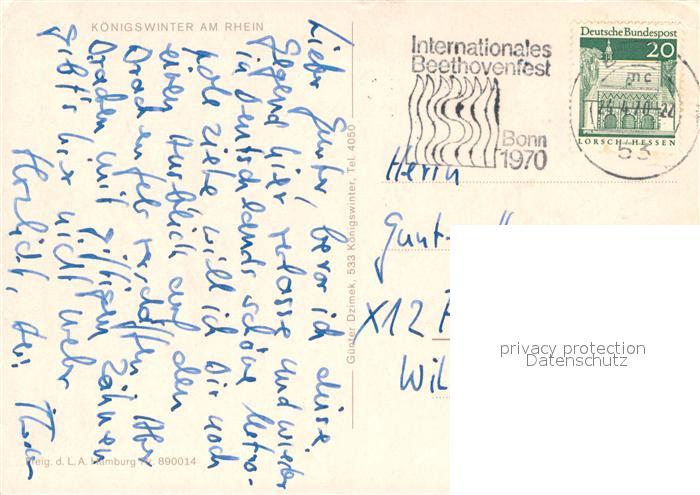 KÖNIGSWINTER AM RHEIN
Lieber Gunter, bevor ich diese
Gegend hier verlasse und wieder
in Deutschlands schöne Metro-
pole ziehe will ich Dir noch
einen Ausblick auf den
Drachenfels verschaffen. Aber
Drachen mit giftigen Zähnen
gibt's hier nicht mehr
Herzlich, Dein
Freig. d. L.A. Hamburg Nr. 890014
Günter Dzimek, 533 Königswinter, Tel. 4050
Internationales
Beethovenfest
Bonn
1970
Deutsche Bundespost
20
LORSCH/HESSEN
53
Herrn
X12
privacy protection
Datenschutz